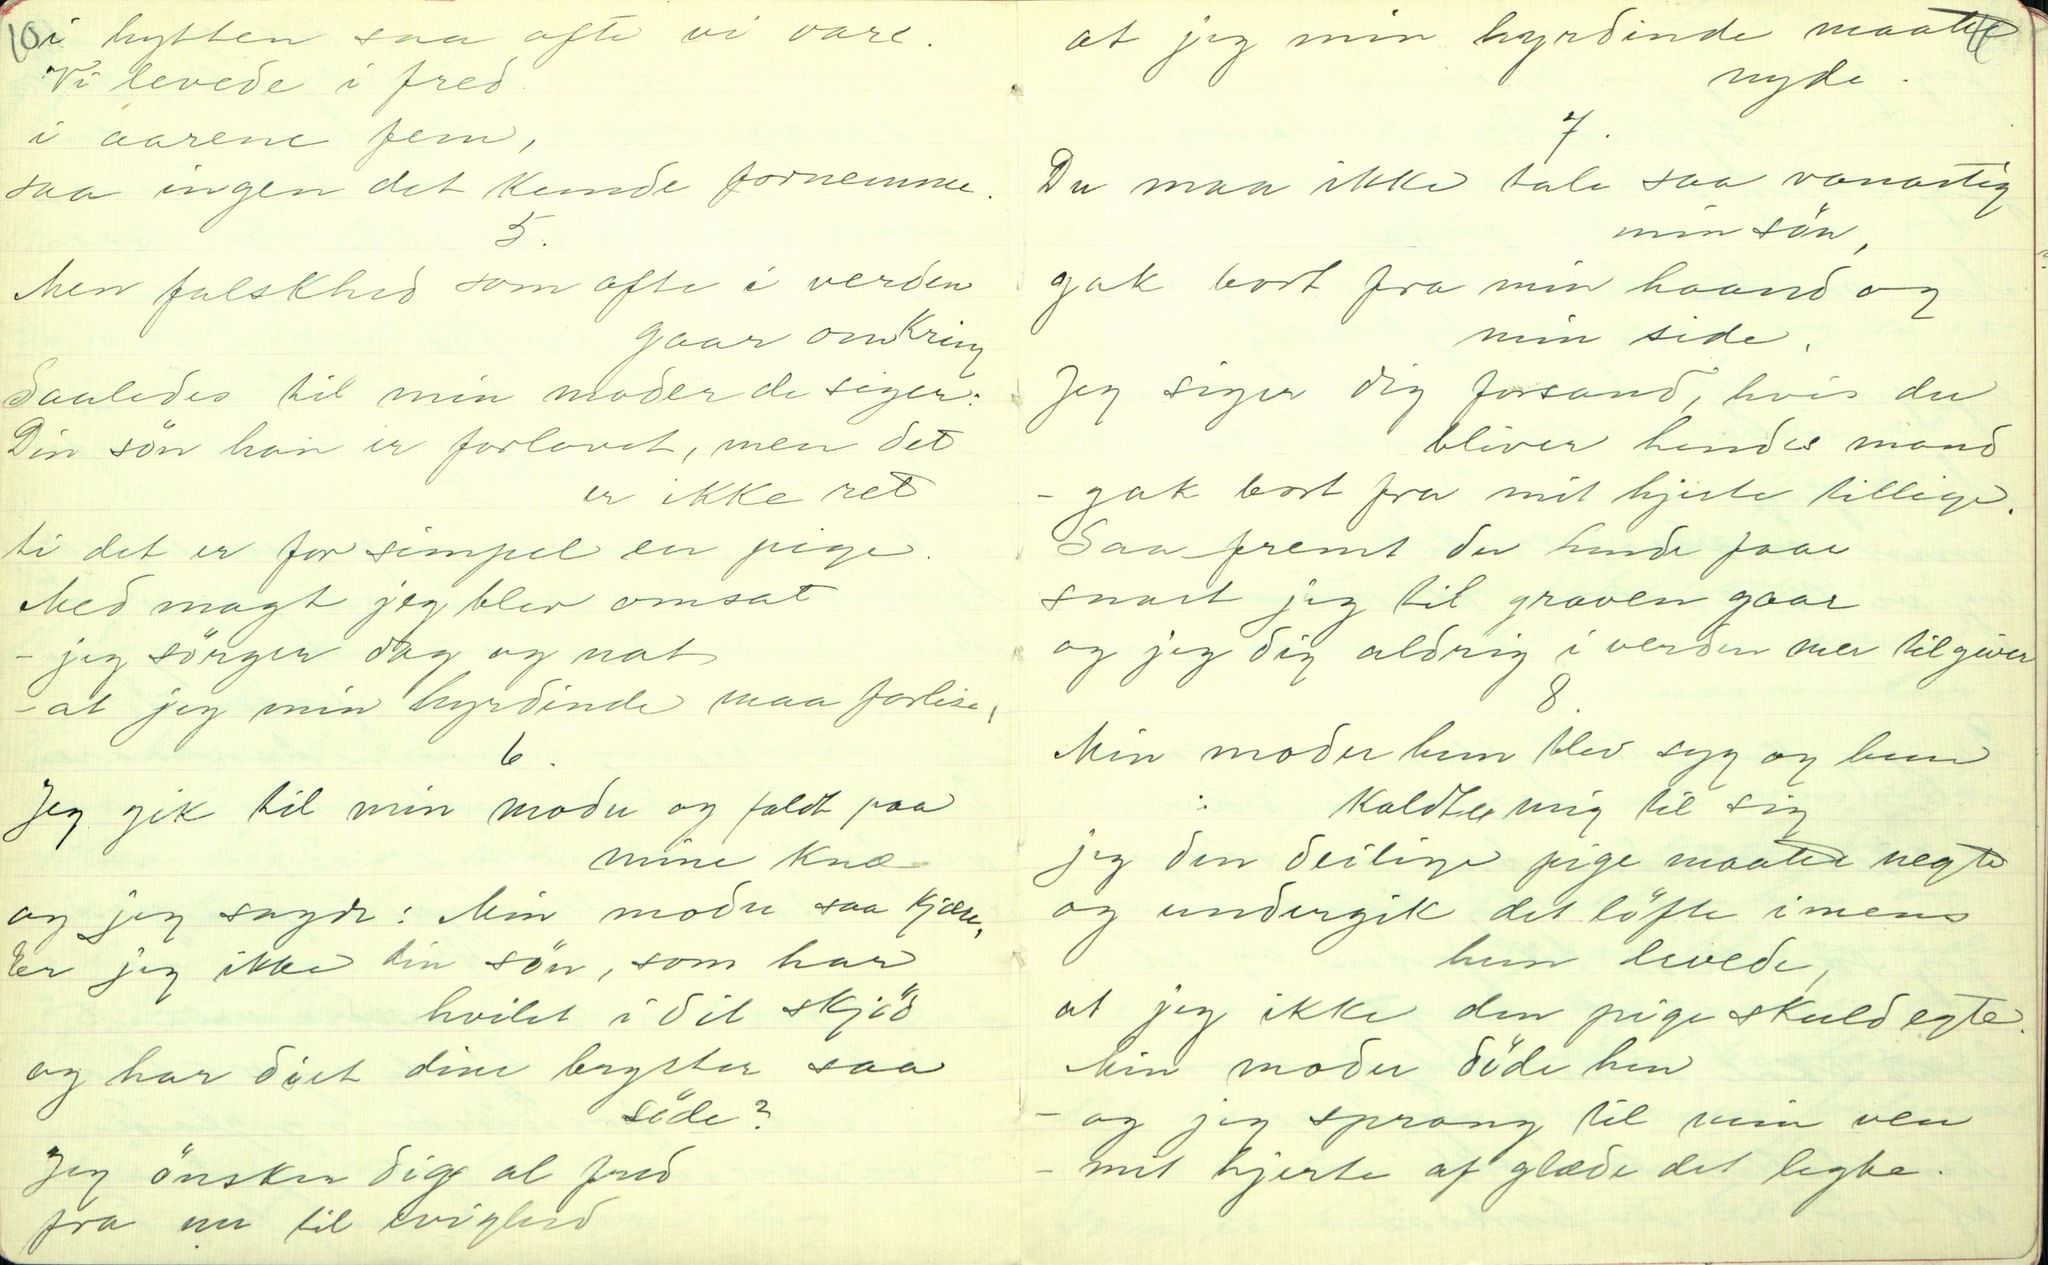 10
i hytten saa ofte vi vare.
Vi levede i fred
i aarene fem,
saa ingen det kunde fornemme.
5.
Men falskhed som ofte i verden
gaar omkring
Saaledes til min moder de siger:
Din sön han er forlovet, men det
er ikke ret
ti det er for simpel en pige.
Med magt jeg blev omsat
- jeg sörger dag og nat
- at jeg min hyrdinde maa forlise,
6.
Jeg gik til min moder og faldt paa
mine knæ
og jeg sagde: Min moder saa kjære,
er jeg ikke din sön, som har
hvilet i dit skjöd
og har diet dine bryster saa
söde?
Jeg önsker dig al fred
fra nu til evighed
at jeg min hyrdinde maatte
nyde.
7.
Du maa ikke tale saa vanartig
min sön,
gak bort fra min haand og
min side.
Jeg siger dig forsand, hvis du
bliver hendes mand
- gak bort fra mit hjerte tillige.
Saa fremt du hende faar
snart jeg til graven gaar
og jeg dig aldrig i verden mer tilgiver
8.
Min moder hun blev syg og hun
kaldte mig til sig
jeg den deilige pige maatte negte
og undergik det löfte imens
hun levede,
at jeg ikke den pige skuld egte.
Min moder döde hen
- og jeg sprang til min ven
- mit hjerte af glæde det legte.